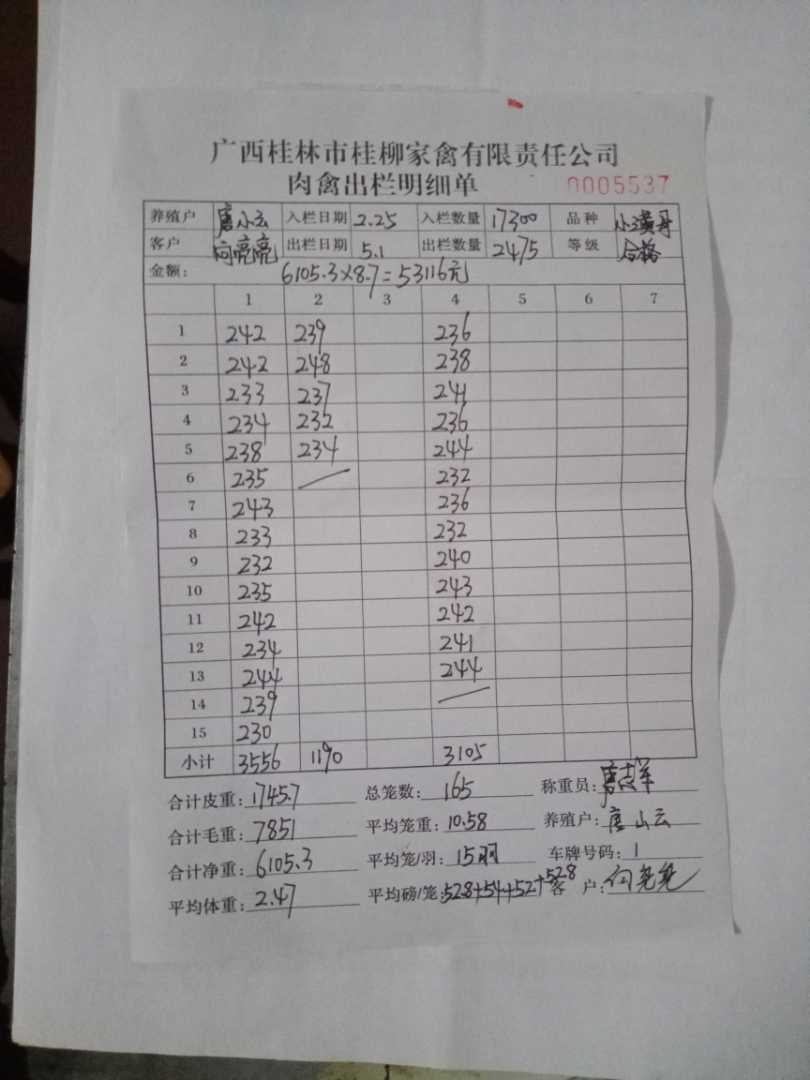 广西桂林市桂柳家禽有限责任公司
肉禽出栏明细单 0005537
养殖户 唐小云 入栏日期 2.25 入栏数量 17300 品种 小黄丹
客户 向亮亮 出栏日期 5.1 出栏数量 2475 等级 合格
金额: 6105.3×8.7=53116元
1 2 3 4 5 6 7
1 242 239 236
2 242 248 238
3 233 237 241
4 234 232 236
5 238 234 244
6 235 232
7 243 236
8 233 232
9 232 240
10 235 243
11 242 242
12 234 241
13 244 244
14 239
15 230
小计 3556 1190 3105
合计皮重: 1745.7 总笼数: 165 称重员:
合计毛重: 7851 平均笼重: 10.58 养殖户: 唐小云
合计净重: 6105.3 平均笼/羽: 15羽 车牌号码: 1
平均体重: 2.47 平均磅/笼: 528+54+52+528 客户: 向亮亮